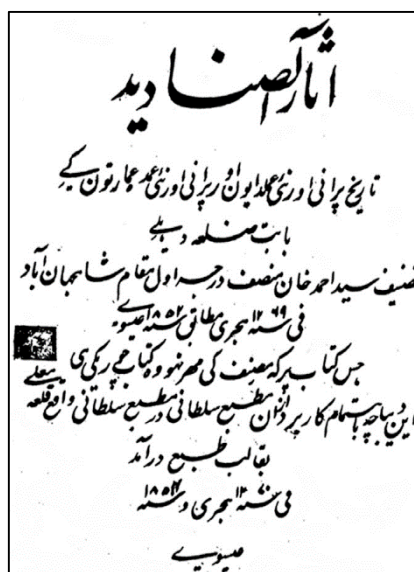 آثار الصنادید
تاریخ پرانی اور نئی عملدایون اور پرانی اور نئی عمدہ عمارتون کے
بابت ضلعہ دہلے
تصنیف سید احمد خان منصف درجہ اول مقام شاہجہان آباد
فی سنہ ۱۲۶۹ ہجری مطابق سنہ ۱۸۵۲ عیسوے
جس کتاب پر کہ مصنف کی مہر نہو وہ کتاب چوری کی ہی
این دیباچہ باہتمام کارپردازان مطبع سلطانی در مطبع سلطانی واقع قلعہ معلے
بقالب طبع درآمد
فی سنہ ۱۲۷۰ ہجری و سنہ ۱۸۵۴
عیسویے